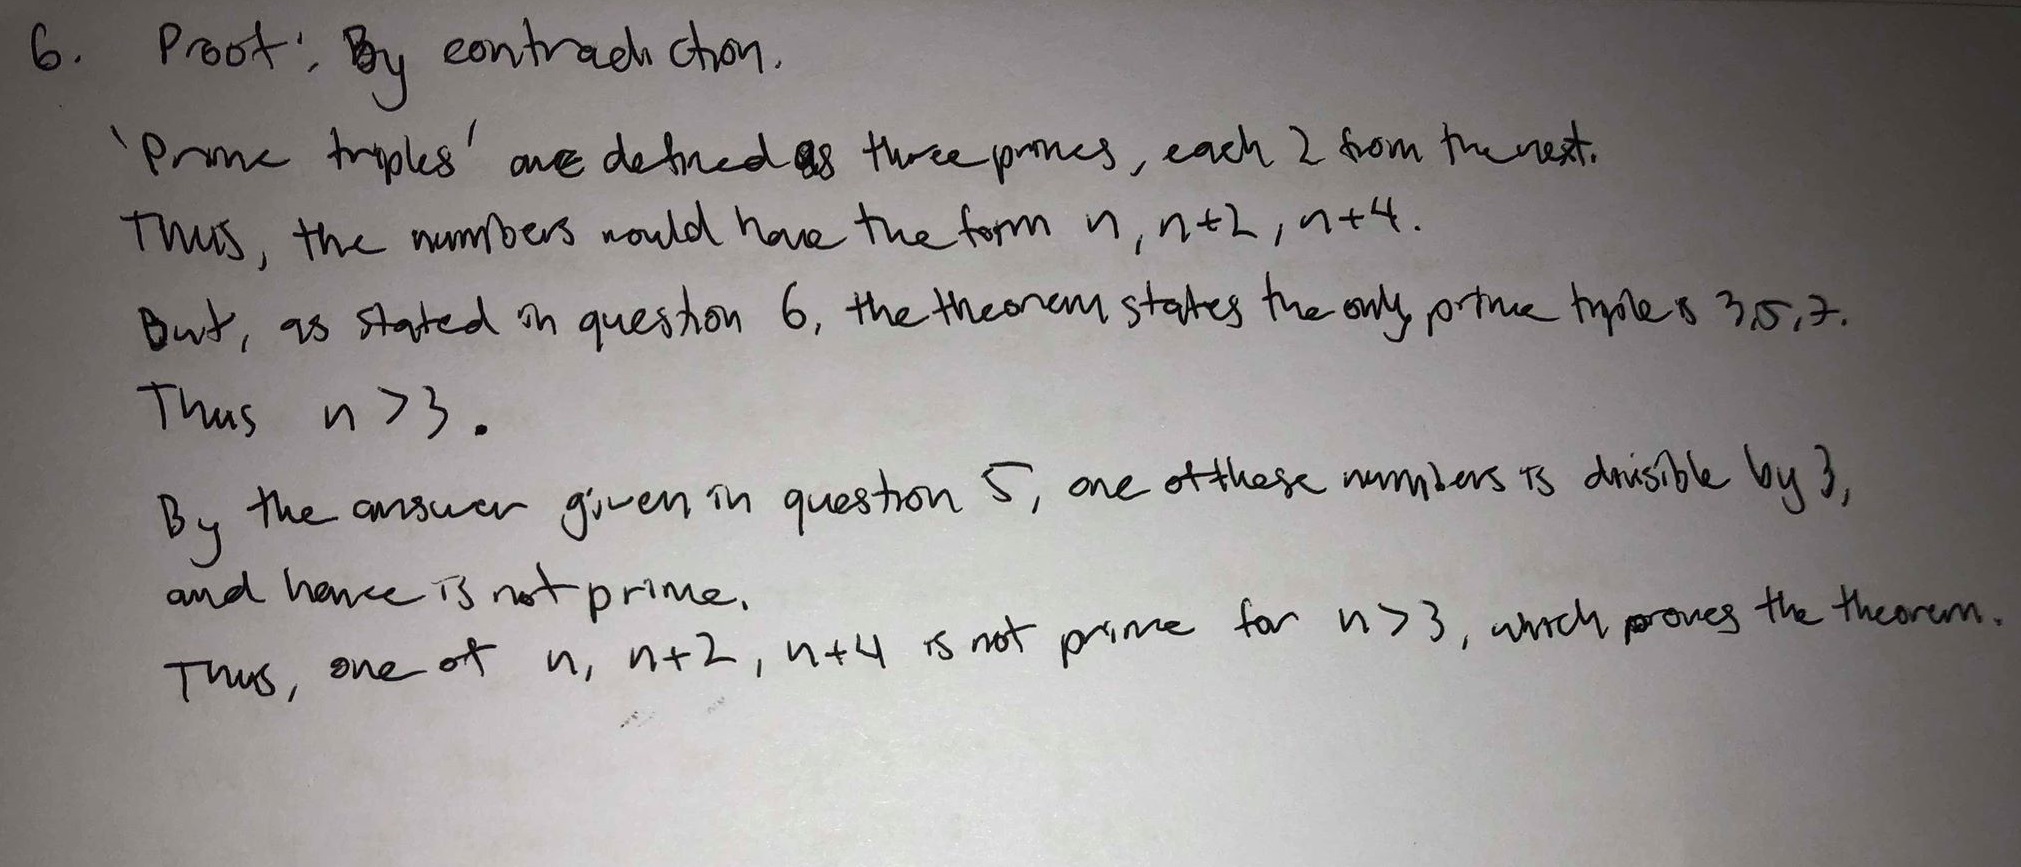 6. Proof: By contradiction.
'Prime triples' are defined as three primes, each 2 from the next.
Thus, the numbers would have the form n, n+2, n+4.
But, as stated in question 6, the theorem states the only prime triple is 3,5,7.
Thus n>3.
By the answer given in question 5, one of these numbers is divisible by 3,
and hence is not prime.
Thus, one of n, n+2, n+4 is not prime for n>3, which proves the theorem.